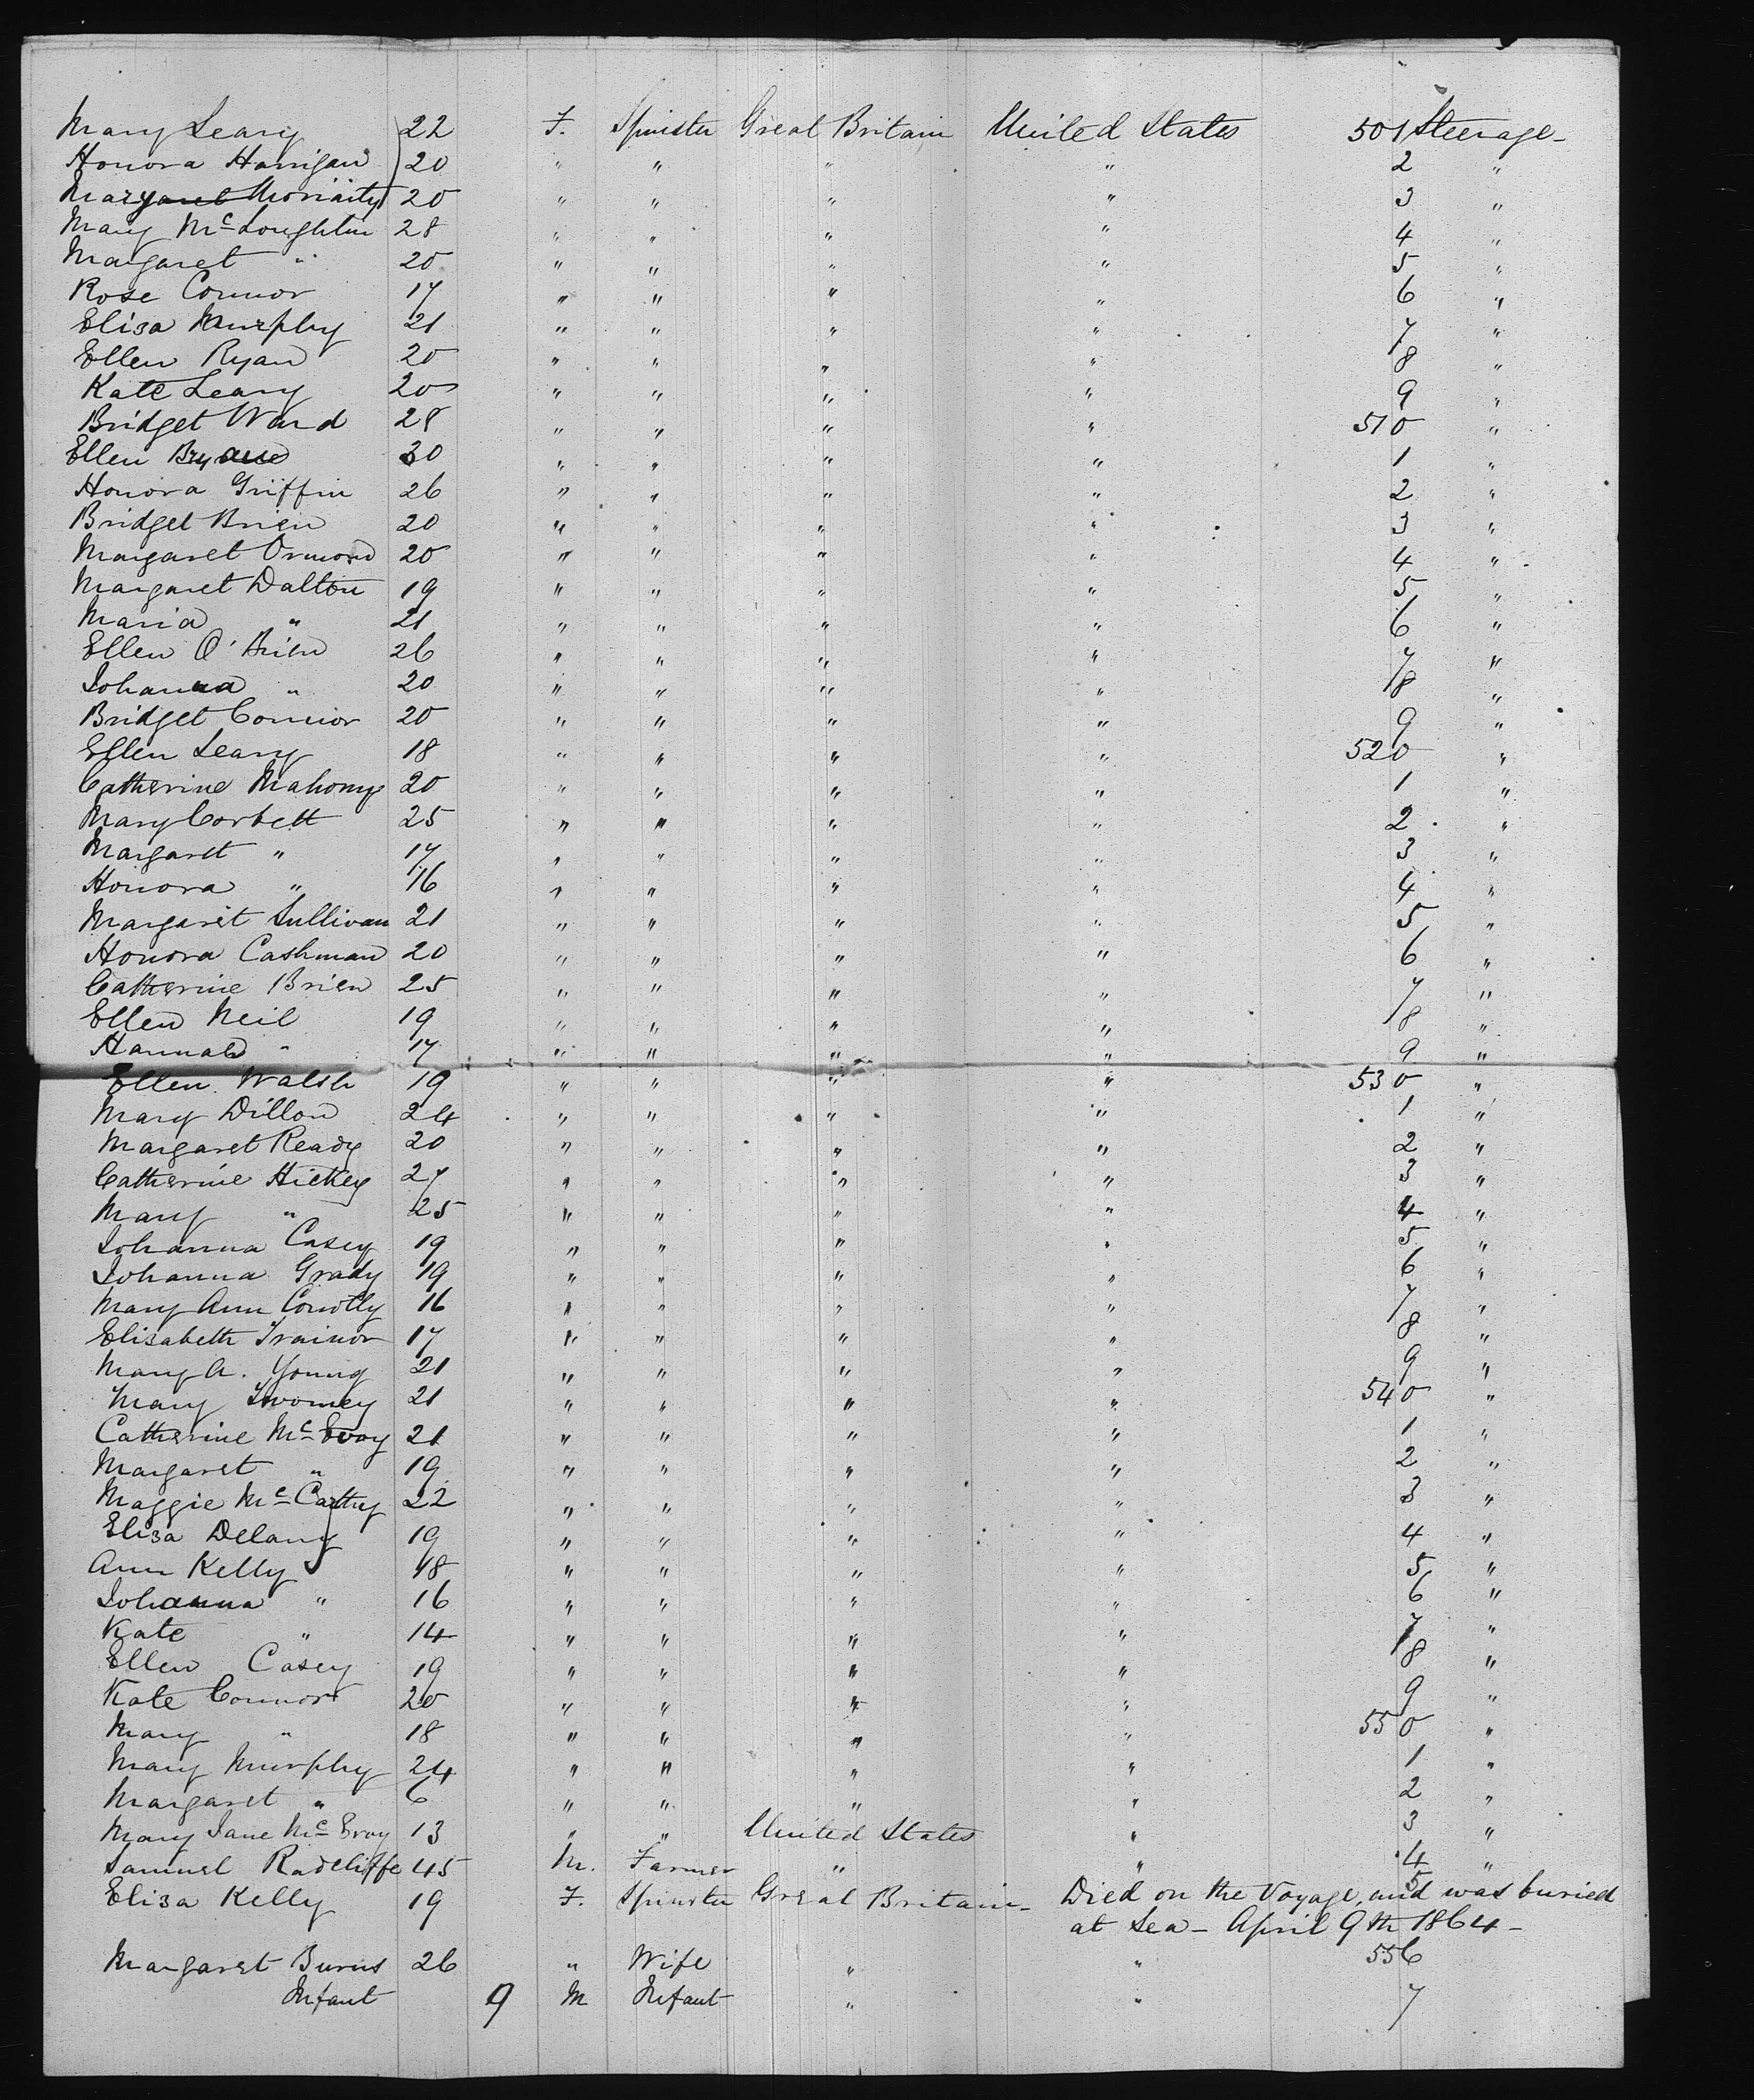 Mary Leary 22 F. Spinster Great Britain United States 501 Steerage
Honora Harrigan 20 " " " " 2 "
Margaret Moriaity 20 " " " " 3 "
Mary Mc Loughlin 28 " " " " 4 "
Margaret " 20 " " " " 5 "
Rose Connor 17 " " " " 6 "
Elisa Murphy 21 " " " " 7 "
Ellen Ryan 20 " " " " 8 "
Kate Leary 20 " " " " 9 "
Bridget Ward 28 " " " " 510 "
Ellen Bryane 30 " " " " 1 "
Honora Griffin 26 " " " " 2 "
Bridget Brien 20 " " " " 3 "
Margaret Ormond 20 " " " " 4 "
Margaret Dalton 19 " " " " 5 "
Maria " 21 " " " " 6 "
Ellen O'Brien 26 " " " " 7 "
Johanna " 20 " " " " 8 "
Bridget Connor 20 " " " " 9 "
Ellen Leary 18 " " " " 520 "
Catherine Mahony 20 " " " " 1 "
Mary Corbett 25 " " " " 2 "
Margaret " 17 " " " " 3 "
Honora " 16 " " " " 4 "
Margaret Sullivan 21 " " " " 5 "
Honora Cashman 20 " " " " 6 "
Catherine Brien 25 " " " " 7 "
Ellen Neil 19 " " " " 8 "
Hannah " 17 " " " " 9 "
Ellen Walsh 19 " " " " 530 "
Mary Dillon 24 " " " " 1 "
Margaret Ready 20 " " " " 2 "
Catherine Hickey 27 " " " " 3 "
Mary " 25 " " " " 4 "
Johanna Casey 19 " " " " 5 "
Johanna Grady 19 " " " " 6 "
Mary Ann Conolly 16 " " " " 7 "
Elisabeth Trainor 17 " " " " 8 "
Mary A. Young 21 " " " " 9 "
Mary Twomey 21 " " " " 540 "
Catherine Mc Evoy 21 " " " " 1 "
Margaret " 19 " " " " 2 "
Maggie Mc Carthy 22 " " " " 3 "
Elisa Delany 19 " " " " 4 "
Ann Kelly 18 " " " " 5 "
Johanna " 16 " " " " 6 "
Kate " 14 " " " " 7 "
Ellen Casey 19 " " " " 8 "
Kate Connor 20 " " " " 9 "
Mary " 18 " " " " 550 "
Mary Murphy 24 " " " " 1 "
Margaret " 6 " " " " 2 "
Mary Jane Mc Evoy 13 " " United States " 3 "
Samuel Radcliffe 45 M. Farmer " " 4 "
Elisa Kelly 19 F. Spinster Great Britain 5 Died on the Voyage, and was buried
at Sea - April 9th 1864 -
Margaret Burns 26 " Wife " " 556
Infant 9 M Infant " " 7